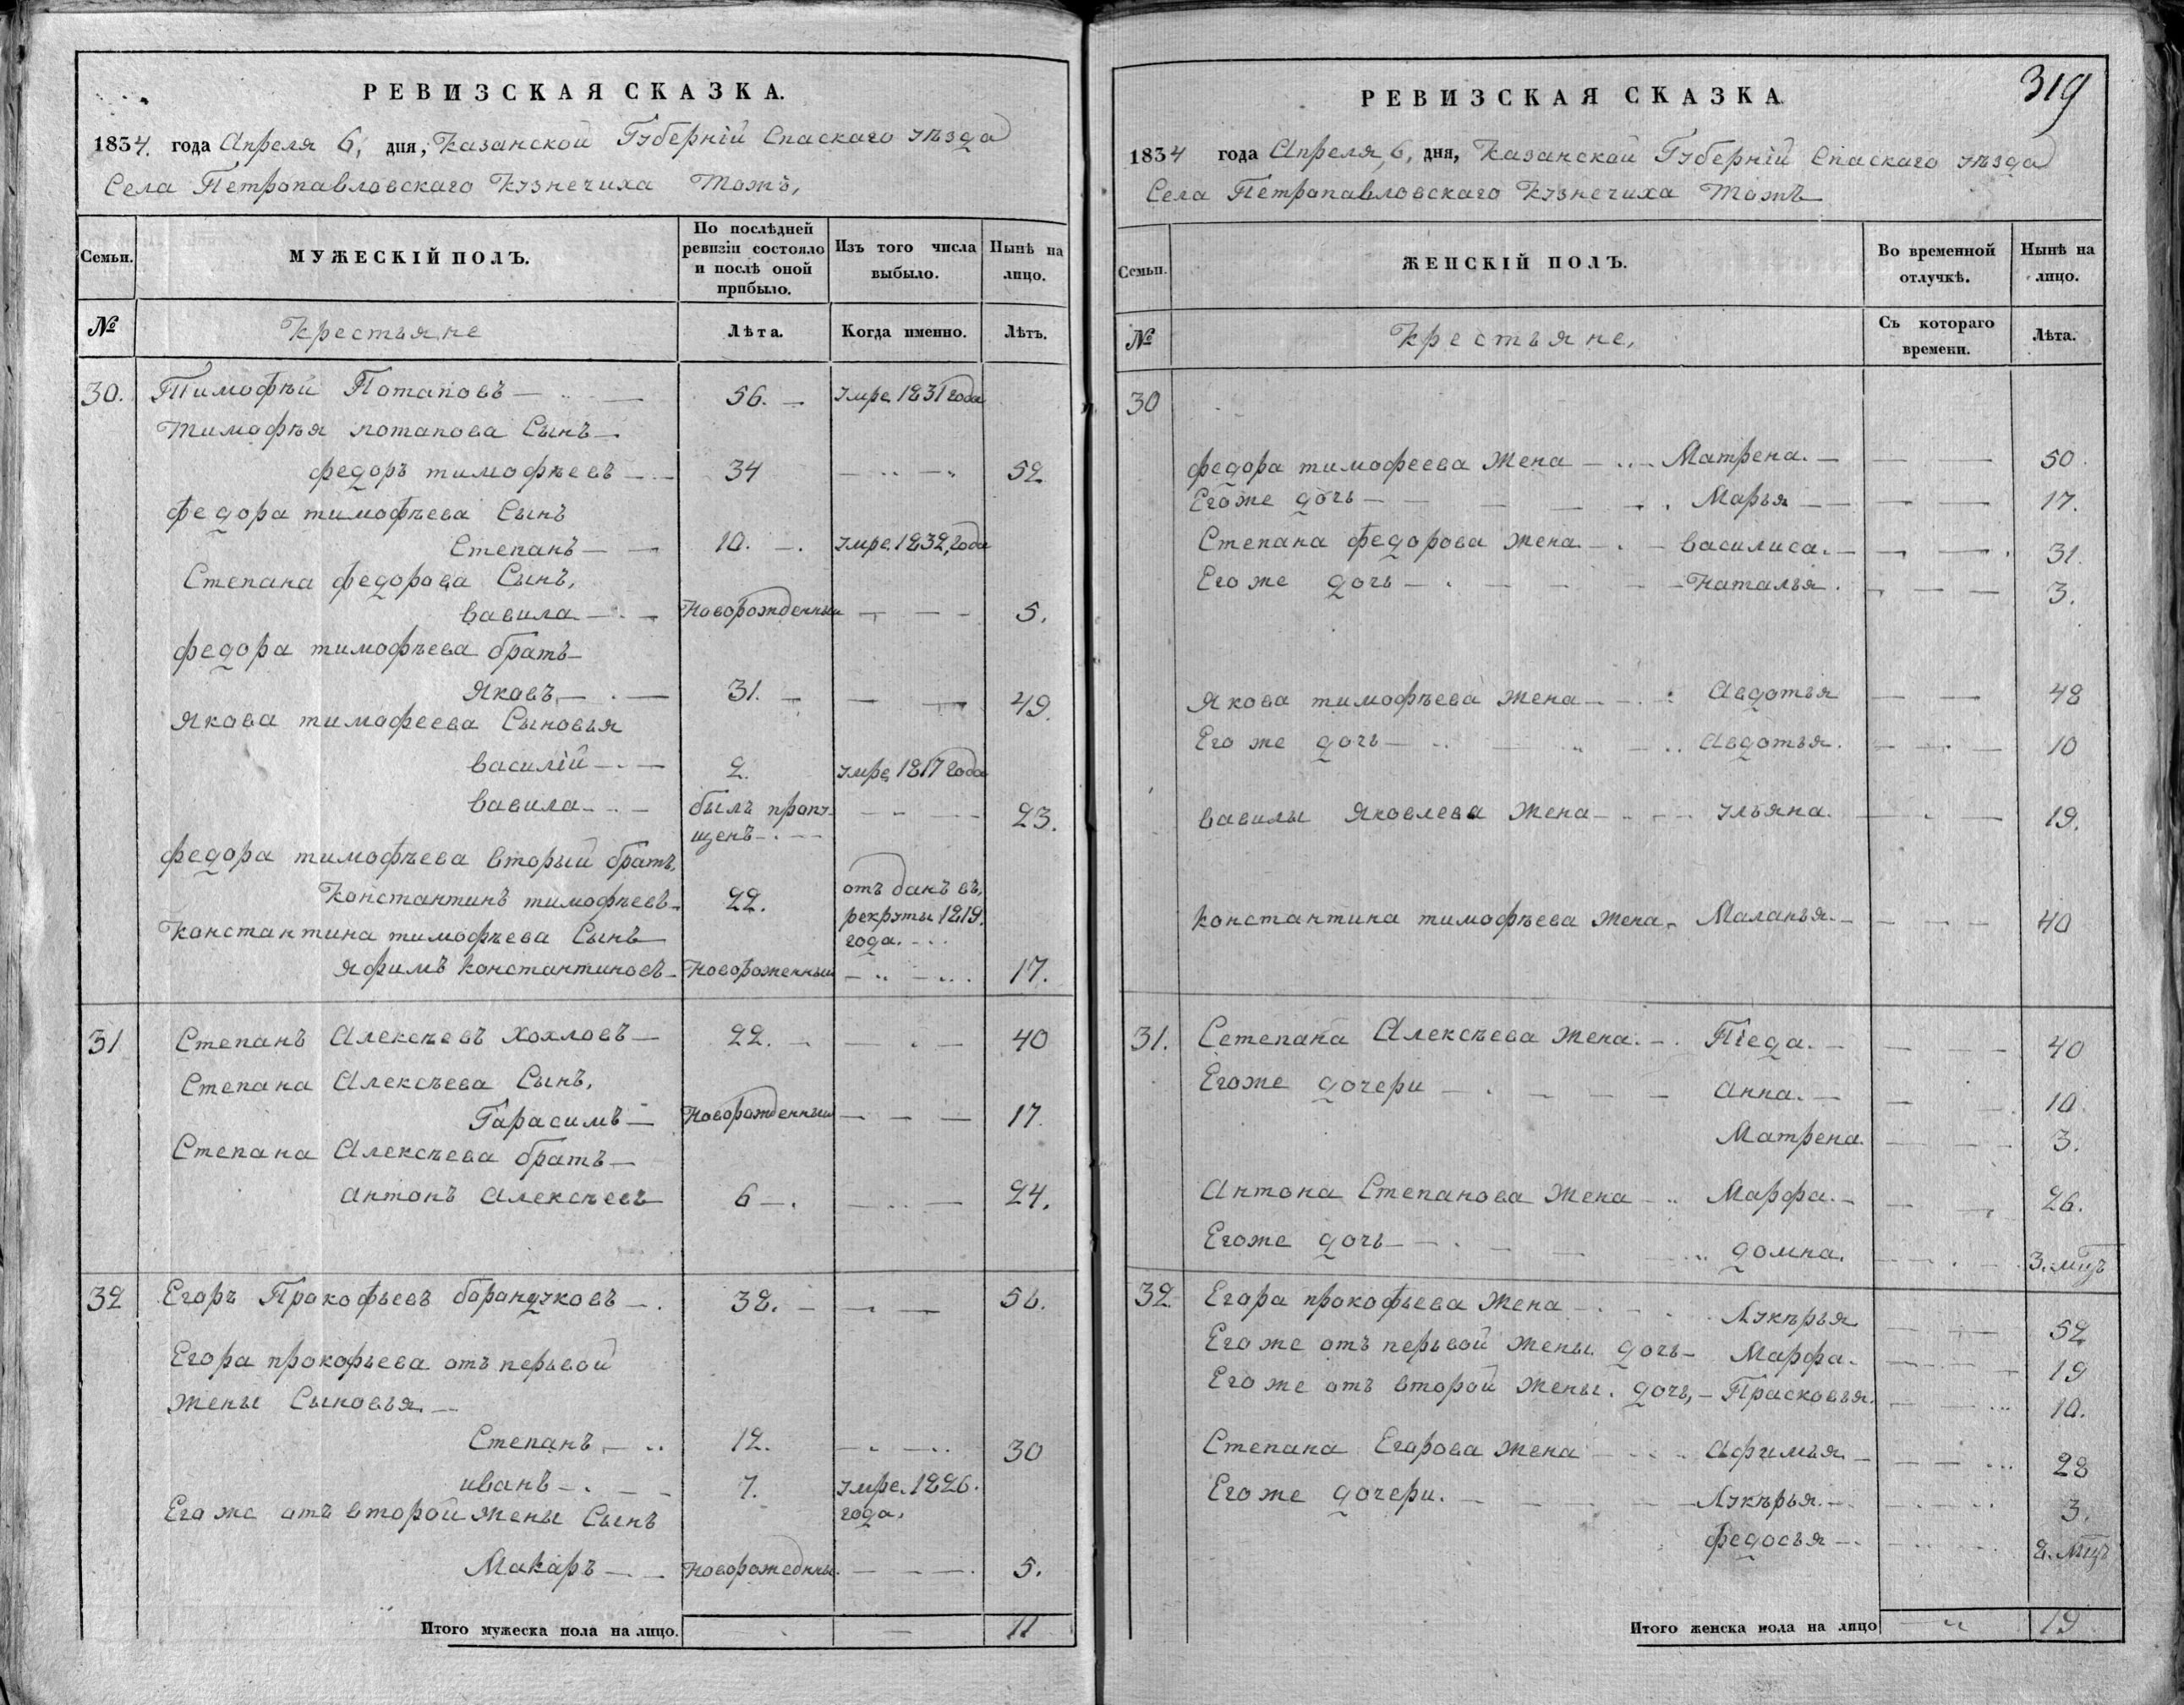 РЕВИЗСКАЯ СКАЗКА.
1834. года Апреля 6, дня, Казанской Губерніи Спаскаго уѣзда
Села Петропавловскаго Кузнечиха Тожъ,
Семьи. МУЖЕСКІЙ ПОЛЪ. По послѣдней ревизіи состояло и послѣ оной прибыло. Изъ того числа выбыло. Нынѣ на лицо.
№ Крестьяне Лѣта. Когда именно. Лѣтъ.
30. Тимофѣй Потаповъ — 56. — умре 1831 года
Тимофѣя потапова Сынъ —
федоръ тимофѣевъ — 34 — 52
федора тимофѣева Сынъ
Степанъ — 10. — умре. 1832, года
Степана федорова Сынъ,
вавила — Новорожденный — 5.
федора тимофѣева братъ —
Яковъ — 31. — 49.
Якова тимофеева Сыновья
василій — 2. умре, 1817 года
вавила — былъ пропу-
щенъ — 23.
федора тимофѣева вторый братъ,
Константинъ тимофѣевъ — 22. отъ данъ въ,
рекруты 1819.
года.
Константина тимофѣева Сынъ
Яфимъ константиновъ — Новороженный — 17.
31 Степанъ Алексѣевъ Хохловъ — 22. — 40
Степана Алексѣева Сынъ,
Гарасимъ — Новорожденный — 17.
Степана Алексѣева братъ —
антонъ алексѣевъ 6 — 24.
32 Егоръ Прокофьевъ барандуковъ — 38. — 56.
Егора прокофьева отъ перьвой
жены Сыновья. —
Степанъ — 12. — 30
иванъ — 7. умре. 1826.
года.
Его же отъ второй жены Сынъ
Макаръ — Новорожедный. — 5.
Итого мужеска пола на лицо. 11
319
РЕВИЗСКАЯ СКАЗКА
1834 года Апреля, 6, дня, Казанской Губерніи Спаскаго уѣзда
Села Петропавловскаго Кузнечиха Тожъ
Семьи. ЖЕНСКІЙ ПОЛЪ. Во временной отлучкѣ. Нынѣ на лицо.
№ Крестьяне, Съ котораго времени. Лѣта.
30
федора тимофеева жена — Матрена. — 50.
Егоже дочь — Марья — 17.
Степана федорова жена — василиса. — 31.
Его же дочь — Наталья. — 3.
Якова тимофѣева жена — Авдотья — 48
Его же дочь — Авдотья. — 10
вавилы Яковлева жена — ульяна. — 19.
Константина тимофѣева жена, Маланья. — 40
31. Сетепана Алексѣева жена. — Піеда. — 40
Егоже дочери — анна. — 10.
Матрена. — 3.
Антона Степанова жена — Марфа. — 26.
Егоже дочь — домна. — 3. мцъ
32. Егора прокофьева жена — Лукѣрья — 52
Его же отъ перьвой жены дочь — Марфа. — 19
Его же отъ второй жены. дочь, — Прасковья. — 10.
Степана Егорова жена — афимья. — 28
Его же дочери. — Лукѣрья. — 3.
федосья — 2. мцъ
Итого женска пола на лицо 19